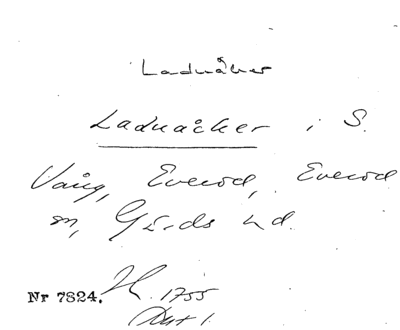 Laduåker
Laduåcker i S.
Vång, Everöd, Everöd
sn, Gärds hd.
Nr 7824. H. 1755
Akt 1.